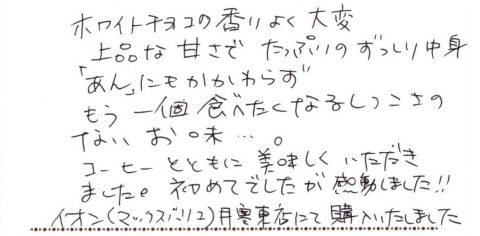 ホワイトチョコの香りよく 大変
上品な甘さで たっぷりのずっしり中身
「あん」にもかかわらず
もう一個食べたくなるしつこさの
ない お味…。
コーヒーとともに 美味しく いただき
ました。初めてでしたが 感動しました!!
イオン(マックスバリュ)月寒東店にて 購入いたしました